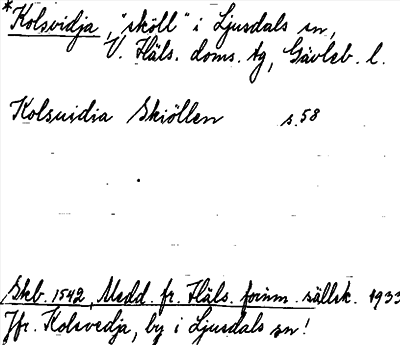 *Kolsvidja, "sköll" i Ljusdals sn,
V. Häls. doms. tg, Gävleb. l.
Kolsuidia Skiöllen s. 58
Skb. 1542, Medd. fr. Häls. forinm. sällsk. 1933
Jfr. Kolsvedja, by i Ljusdals sn!